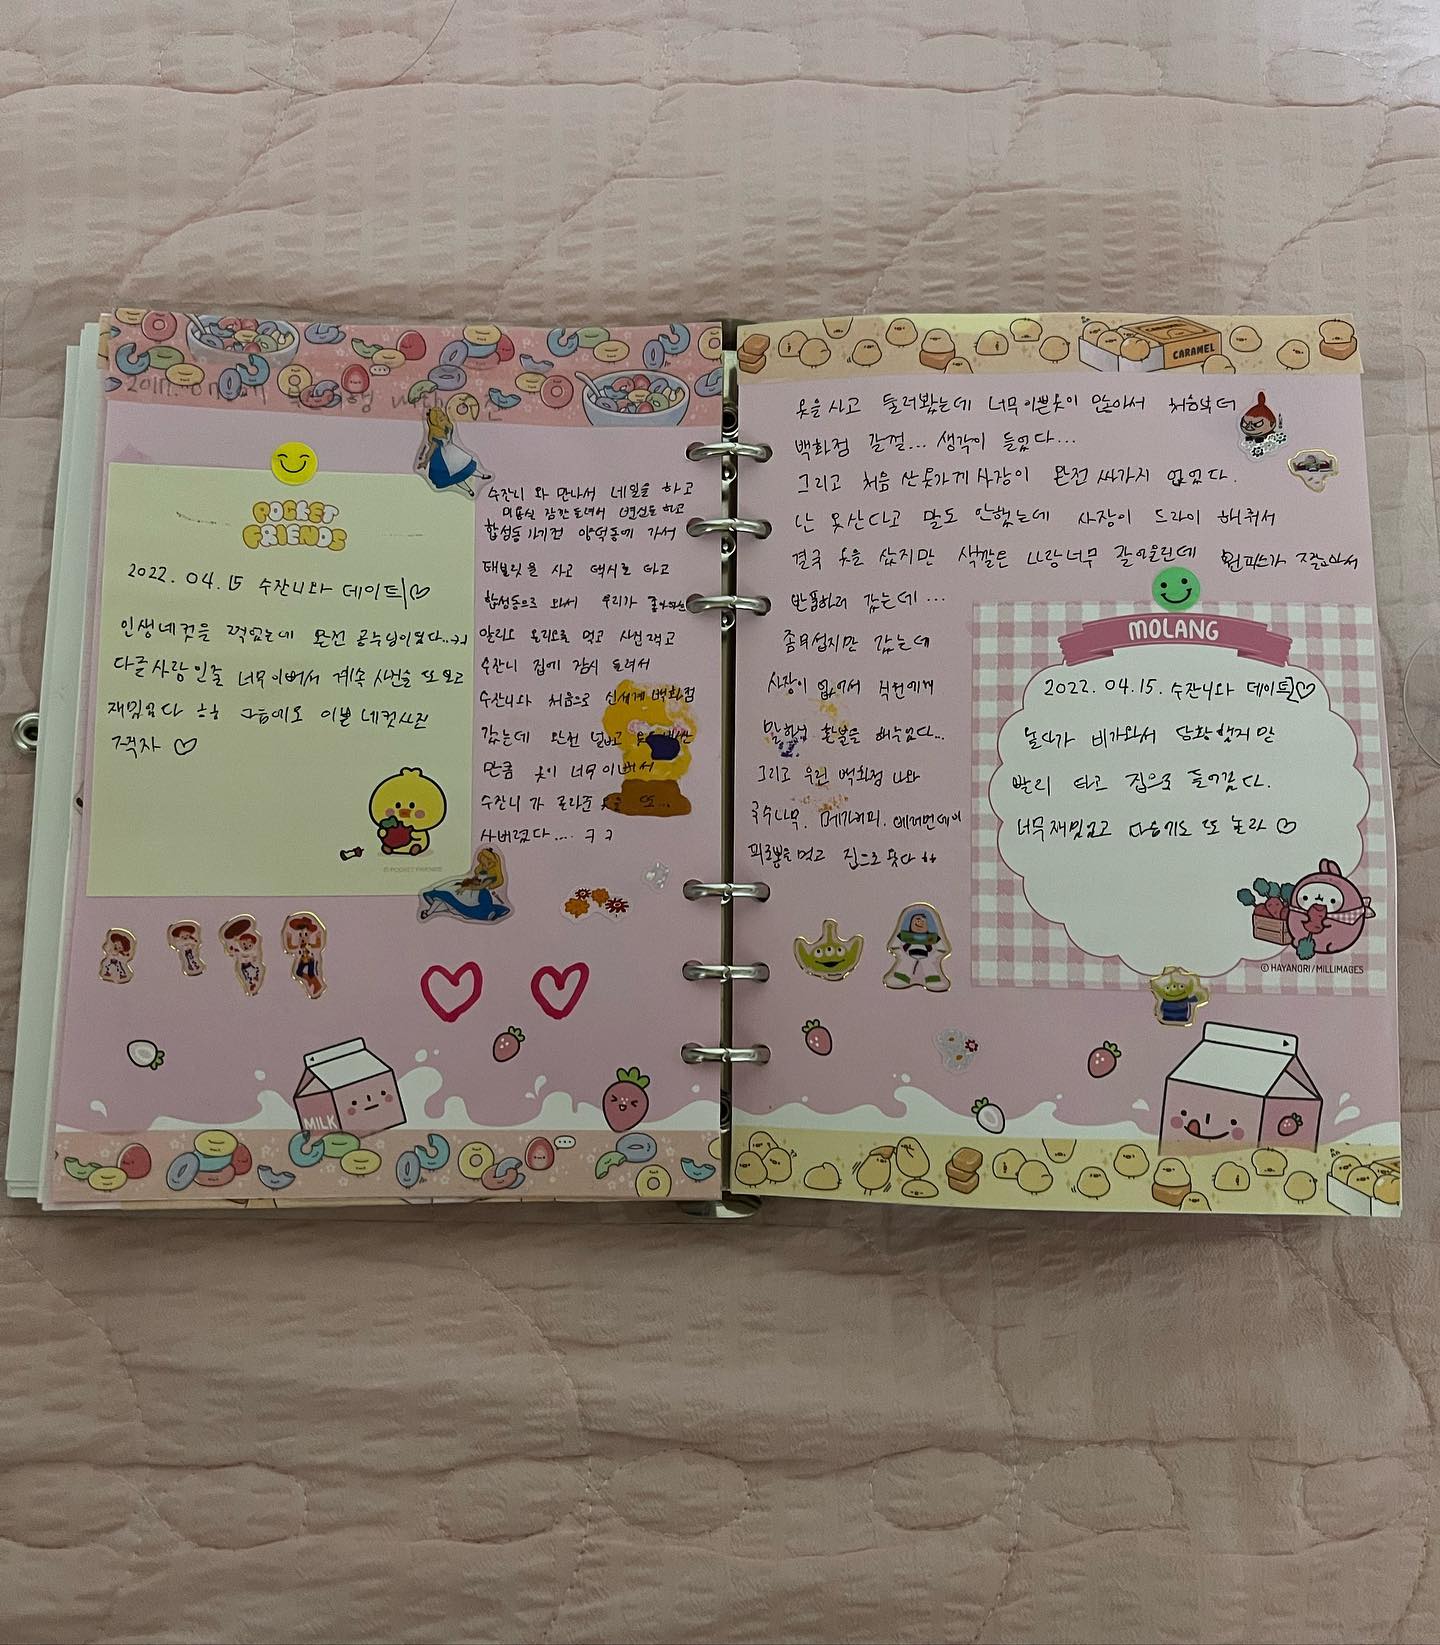 POCKET
FRIENDS
2022. 04. 15 수잔니와 데이트♡
인생네컷을 찍었는데 완전 공주님이였다..ㅋㅋ
다른사람인줄 너무이뻐서 계속 사진을 또보고
재밌었다 ㅎㅎ 다음에도 이쁜 네컷사진
찍자 ♡
© POCKET FRIENDS
with
수잔니 와 만나서 네일을 하고
미용실 잠깐 들려서 변신도 하고
합성동 가기전 양덕동에 가서
태블릿을 사고 택시를 타고
합성동으로 와서 우리가
알리오 올리오를 먹고 사진찍고
수잔니 집에 잠시 들려서
수잔니와 처음으로 신세계 백화점
갔는데 완전 넓고
만큼 옷이 너무 이뻐서
수잔니 가 골라준 또...
사버렸다.... ㅋㅋ
MILK
CARAMEL
옷을 사고 둘러봤는데 너무이쁜옷이 많아서 처음부터
백화점 갈걸... 생각이 들었다...
그리고 처음 산옷가게 사장이 완전 싸가지 없었다.
난 옷산다고 말도 안했는데 사장이 드라이 해줘서
결국 옷을 샀지만 색깔은 나랑너무 잘어울린데 원피스가 작아서
반품하러 갔는데...
좀무섭지만 갔는데
사장이 없어서 직원에게
말해서 환불을 해주었다...
그리고 우린 백화점 나와
국수나무, 메가커피,
먹고 집으로 왔다 ㅎㅎ
MOLANG
2022. 04. 15. 수잔니와 데이트♡
놀다가 비가와서 당황했지만
빨리 타고 집으로 들어갔다.
너무재밌었고 다음에도 또 놀라 ♡
© HAYANORI/MILLIMAGES